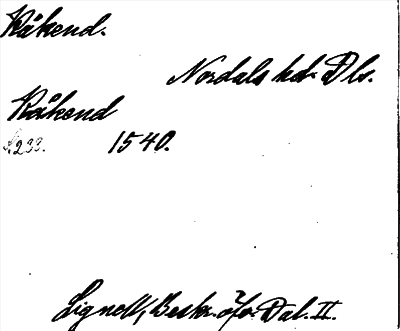 Råkend.
Nordals hd. Dls.
Råkend
S. 233. 1540.
Lignell, Beskr. öfv. Dal. II.